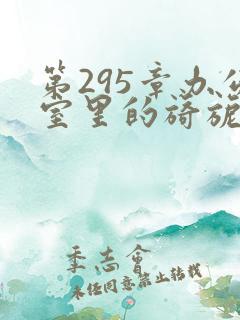 第295章办公
室里的旖旎
季志会
未经同意禁止转载